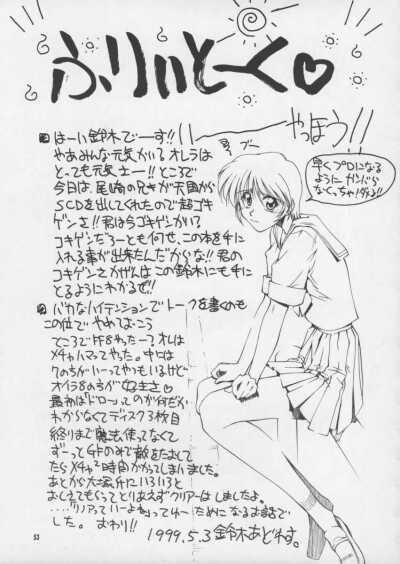 ふりいとーく♡
はーい鈴木でーす!!
やっほう!!
やあみんな元気かい? オレラは
とっても元気さー!! ところで
今日は、尾崎の兄きが天国から
SCDを出してくれたので超ゴキ
ゲンさ!! 君は今ゴキゲンかい?
コキゲンだろーとも何せ、この本を手に
入れる事が出来たんだからな!! 君の
コキゲンさかげんはこの鈴木にも手に
とるようにわかるぜ!!
バカなハイテンションでトークを書くのも
この位でやめておこう
てころでFF8やたー? オレは
メチャハマってやった。中には
7のちがいーってやつもいるけど
オイラ8のちが好きさ♡
最初は「ドロー」ってのが何だか
わからなくてディスク3枚目
終りまで魔法使ってなくて
ずーってGFのみで敵をたおして
たらメチャ²時間かかってしまいました。
あとが大塚氏にいろいろと
おしえてもらってとりあえずクリアーはしましたよ。
・・・・「リノアっていーよね」ってゆーためになるお話で
した。おわり!!
1999.5.3 鈴木あどねす。
早くプロになる
ようにガンバら
なくっちゃ!
53